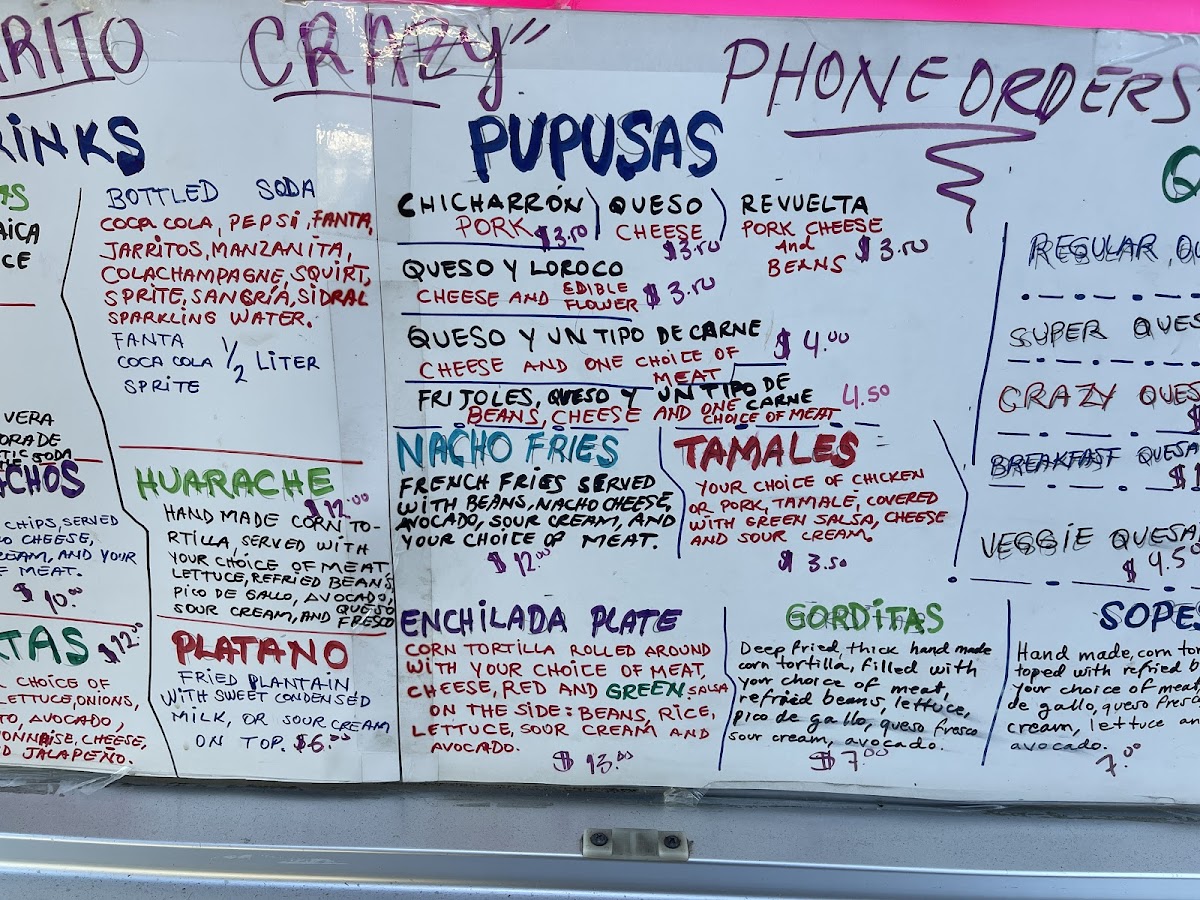 CRAZY"
PHONE ORDERS
BOTTLED SODA
COCA COLA, PEPSI, FANTA,
JARRITOS, MANZANITA,
COLACHAMPAGNE, SQUIRT,
SPRITE, SANGRÍA, SIDRAL
SPARKLING WATER.
FANTA
COCA COLA 1/2 LITER
SPRITE
VERA
HUARACHE
$12.00
HAND MADE CORN TO-
RTILLA, SERVED WITH
YOUR CHOICE OF MEAT
LETTUCE, REFRIED BEANS
PICO DE GALLO, AVOCADO,
SOUR CREAM, AND QUESO
FRESCO
CHIPS, SERVED
CHEESE,
AND YOUR
MEAT.
$10.00
$12.00
CHOICE OF
LETTUCE, ONIONS,
AVOCADO,
CHEESE,
JALAPEÑO.
PLATANO
FRIED PLANTAIN
WITH SWEET CONDENSED
MILK, OR SOUR CREAM
ON TOP. $6.00
PUPUSAS
CHICHARRÓN
PORK $3.50
QUESO
CHEESE
$3.50
REVUELTA
PORK CHEESE
And
BEANS
$3.50
QUESO Y LOROCO
CHEESE AND EDIBLE
FLOWER $3.50
QUESO Y UN TIPO DE CARNE
CHEESE AND ONE CHOICE OF
MEAT
$4.00
FRIJOLES, QUESO Y UN TIPO DE
CARNE 4.50
BEANS, CHEESE AND ONE
CHOICE OF MEAT
NACHO FRIES
FRENCH FRIES SERVED
WITH BEANS, NACHO CHEESE,
AVOCADO, SOUR CREAM, AND
YOUR CHOICE OF MEAT.
$12.00
TAMALES
YOUR CHOICE OF CHICKEN
OR PORK, TAMALE, COVERED
WITH GREEN SALSA, CHEESE
AND SOUR CREAM.
$3.50
ENCHILADA PLATE
CORN TORTILLA ROLLED AROUND
WITH YOUR CHOICE OF MEAT,
CHEESE, RED AND GREEN SALSA
ON THE SIDE: BEANS, RICE,
LETTUCE, SOUR CREAM AND
AVOCADO.
$13.00
GORDITAS
Deep fried, thick hand made
corn tortilla, filled with
your choice of meat,
refried beans, lettuce,
pico de gallo, queso fresco
sour cream, avocado.
$7.00
REGULAR
SUPER
CRAZY
BREAKFAST
VEGGIE
$4.5
SOPES
Hand made, corn
toped with refried
your choice of
de gallo, queso
cream, lettuce
avocado.
7.00